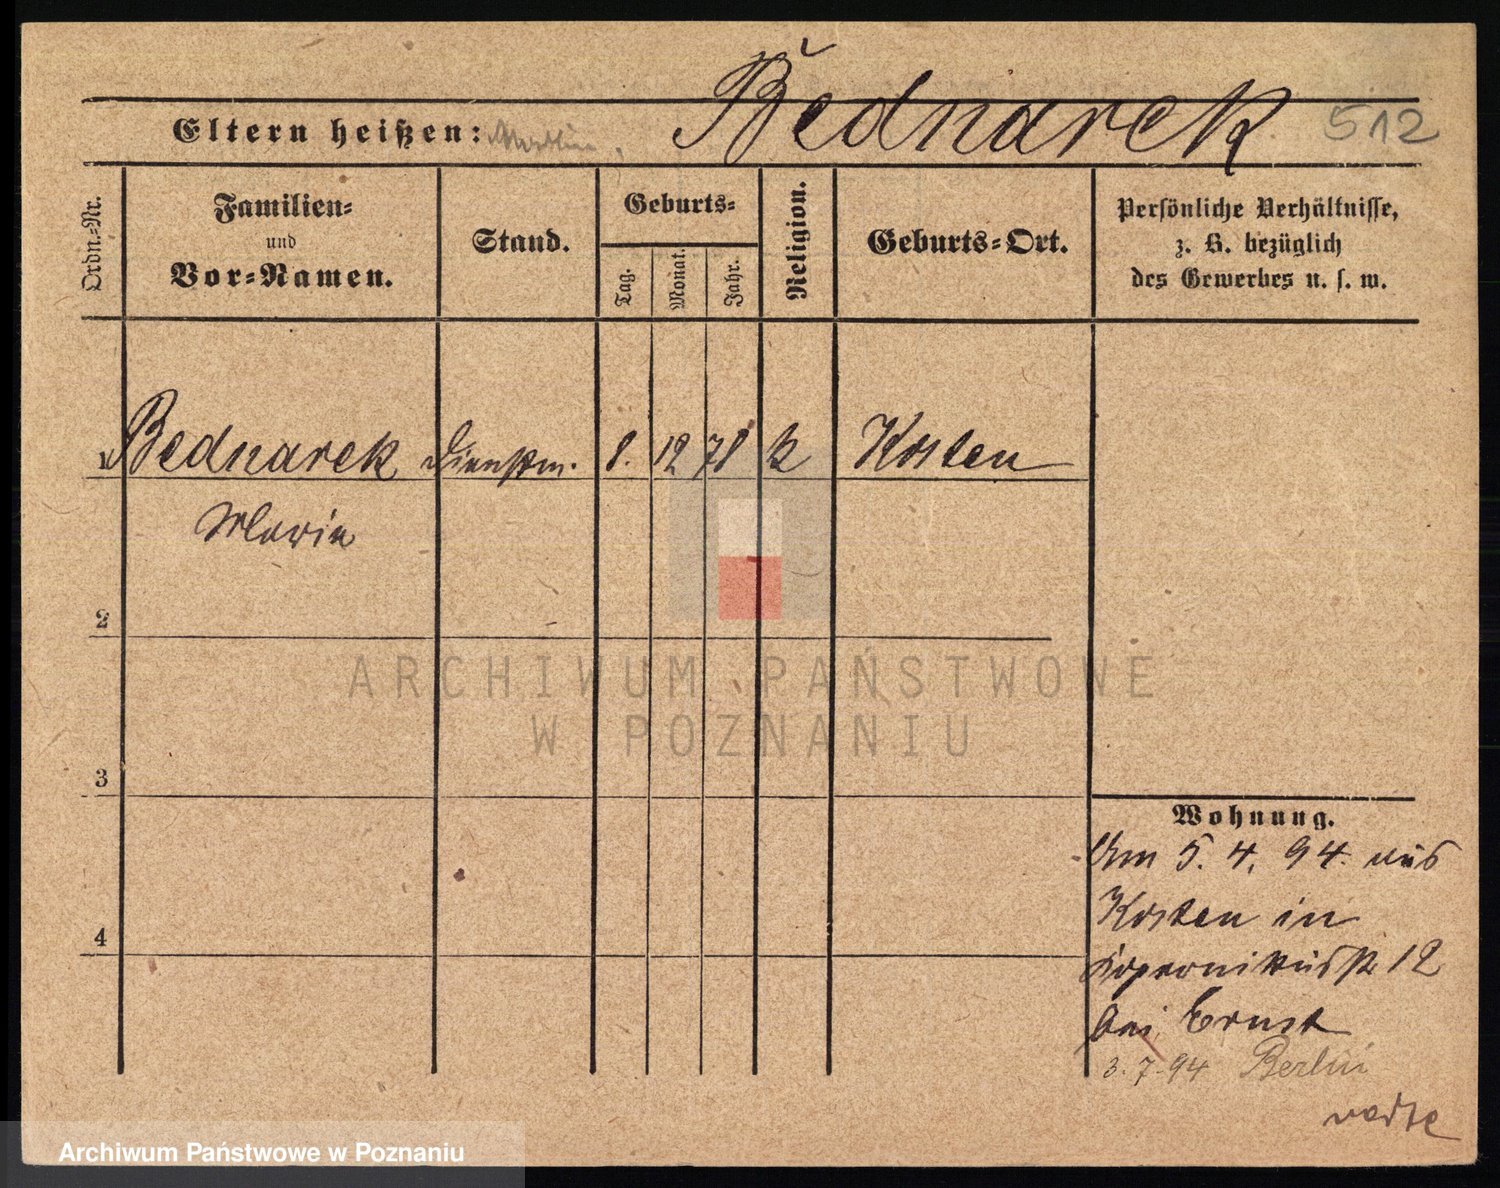 Bednarek
512
Eltern heißen:
Ordn.-Nr.
Familien-
und
Vor-Namen.
Stand.
Geburts-
Tag.
Monat.
Jahr.
Religion.
Geburts-Ort.
Persönliche Verhältnisse,
z. B. bezüglich
des Gewerbes u. s. w.
Bednarek Dienstm. 8. 12 78 k Kosten
Maria
2
3
4
Wohnung.
Am 5. 4. 94. aus
Kosten in
Kopernikusstr 12
bei Ernst
3. 7. 94 Berlin
ARCHIWUM PAŃSTWOWE
W POZNANIU
Archiwum Państwowe w Poznaniu